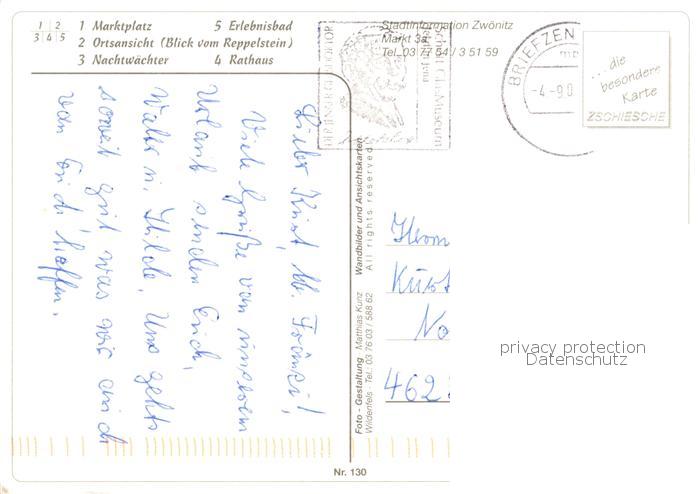 1 2
3 4 5
1 Marktplatz 5 Erlebnisbad
2 Ortsansicht (Blick vom Reppelstein)
3 Nachtwächter 4 Rathaus
Stadtinformation Zwönitz
Markt 3a
Tel. 03 77 54 / 3 51 59
BRIEFZEN
-4.-9.0
... die
besondere
Karte
ZSCHIESCHE
Lieber Kurt, lb.
Viele Grüße von unserem
Urlaub senden Euch,
Walter u. Hilde. Uns gehts
soweit gut, was wir auch
von Euch hoffen.
Foto - Gestaltung Matthias Kunz
Wildenfels · Tel.: 03 76 03 / 588 62
Wandbilder und Ansichtskarten
All rights reserved
Herrn
Kurt
No
462
Nr. 130
privacy protection
Datenschutz